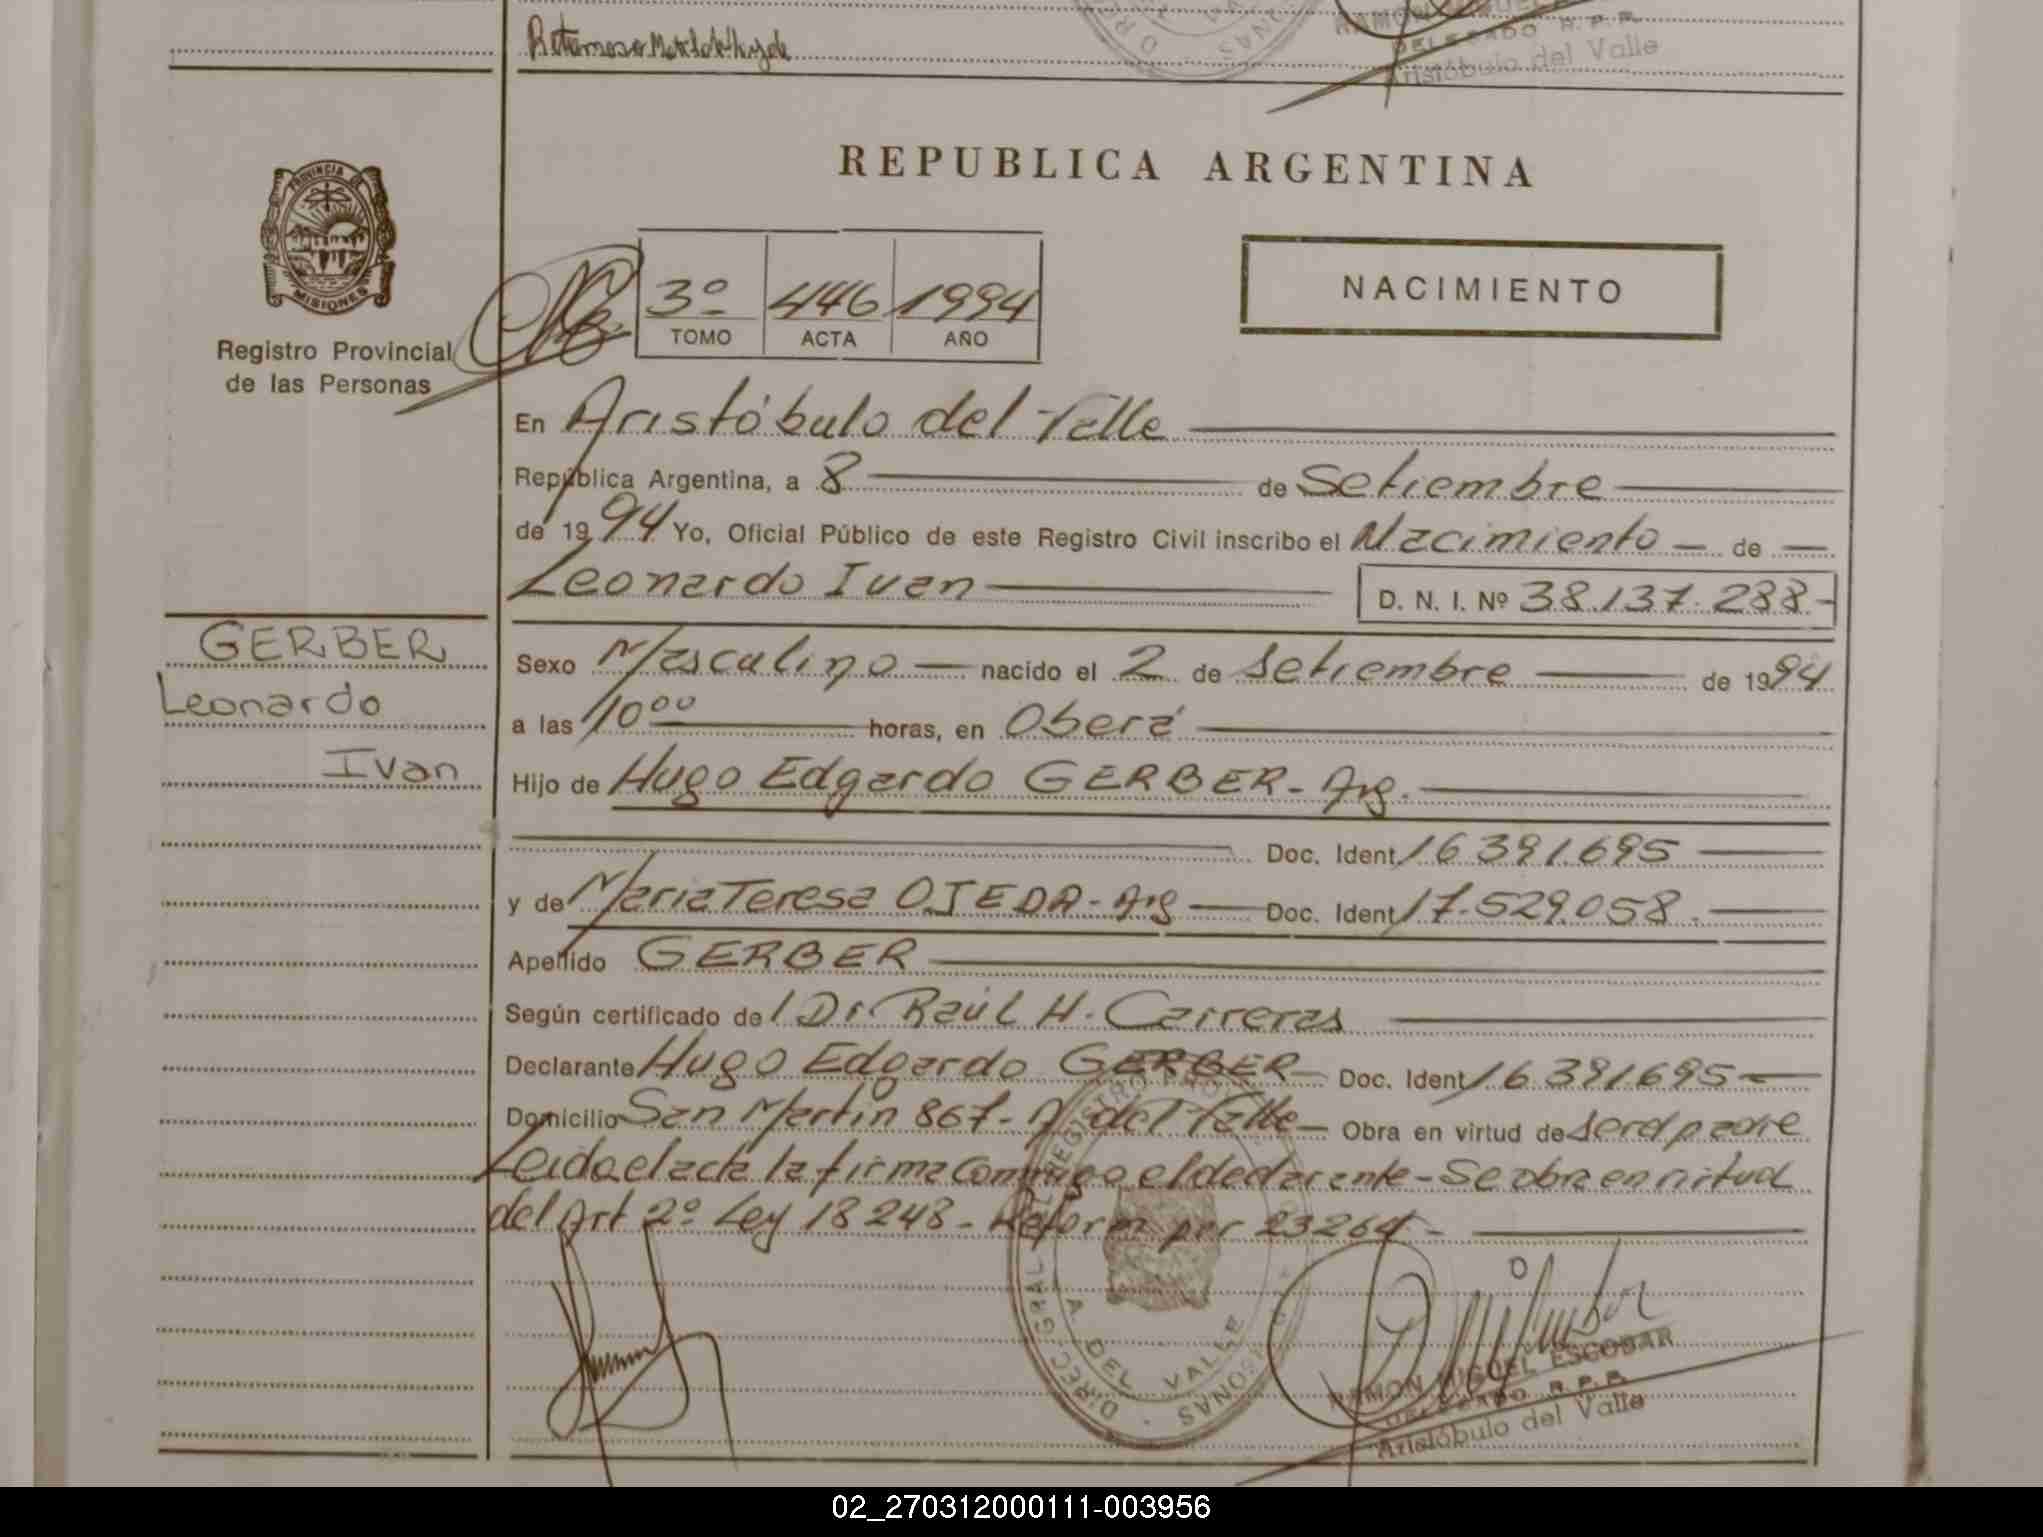 RAMON MIGUEL
DELEGADO R.P.P.
Aristóbulo del Valle
PROVINCIA DE
MISIONES
Registro Provincial
de las Personas
REPUBLICA ARGENTINA
3º 446 1994
TOMO ACTA AÑO
NACIMIENTO
En Aristóbulo del Valle
República Argentina, a 8 de Setiembre
de 1994 Yo, Oficial Público de este Registro Civil inscribo el Nacimiento - de -
Leonardo Ivan D. N. I. Nº 38.137.288-
GERBER
Leonardo
Ivan
Sexo Masculino - nacido el 2 de Setiembre de 1994
a las 10ºº horas, en Oberá
Hijo de Hugo Edgardo GERBER - Arg.
Doc. Ident 16391695
y de Maria Teresa OJEDA - Arg Doc. Ident 17.529.058.
Apellido GERBER
Según certificado del Dr Raúl H. Carreras
Declarante Hugo Edgardo GERBER - Doc. Ident 16391695
Domicilio San Martin 867 - A. del Valle - Obra en virtud de ser el padre
Leida el acta la firma conmigo el declarante - Se obra en virtud
del Art 2º Ley 18248 - Reform por 23264 -
DIREC. GRAL. DEL REGISTRO
A. DEL VALLE
RAMON MIGUEL ESCOBAR
DELEGADO R.P.P.
Aristóbulo del Valle
02_270312000111-003956